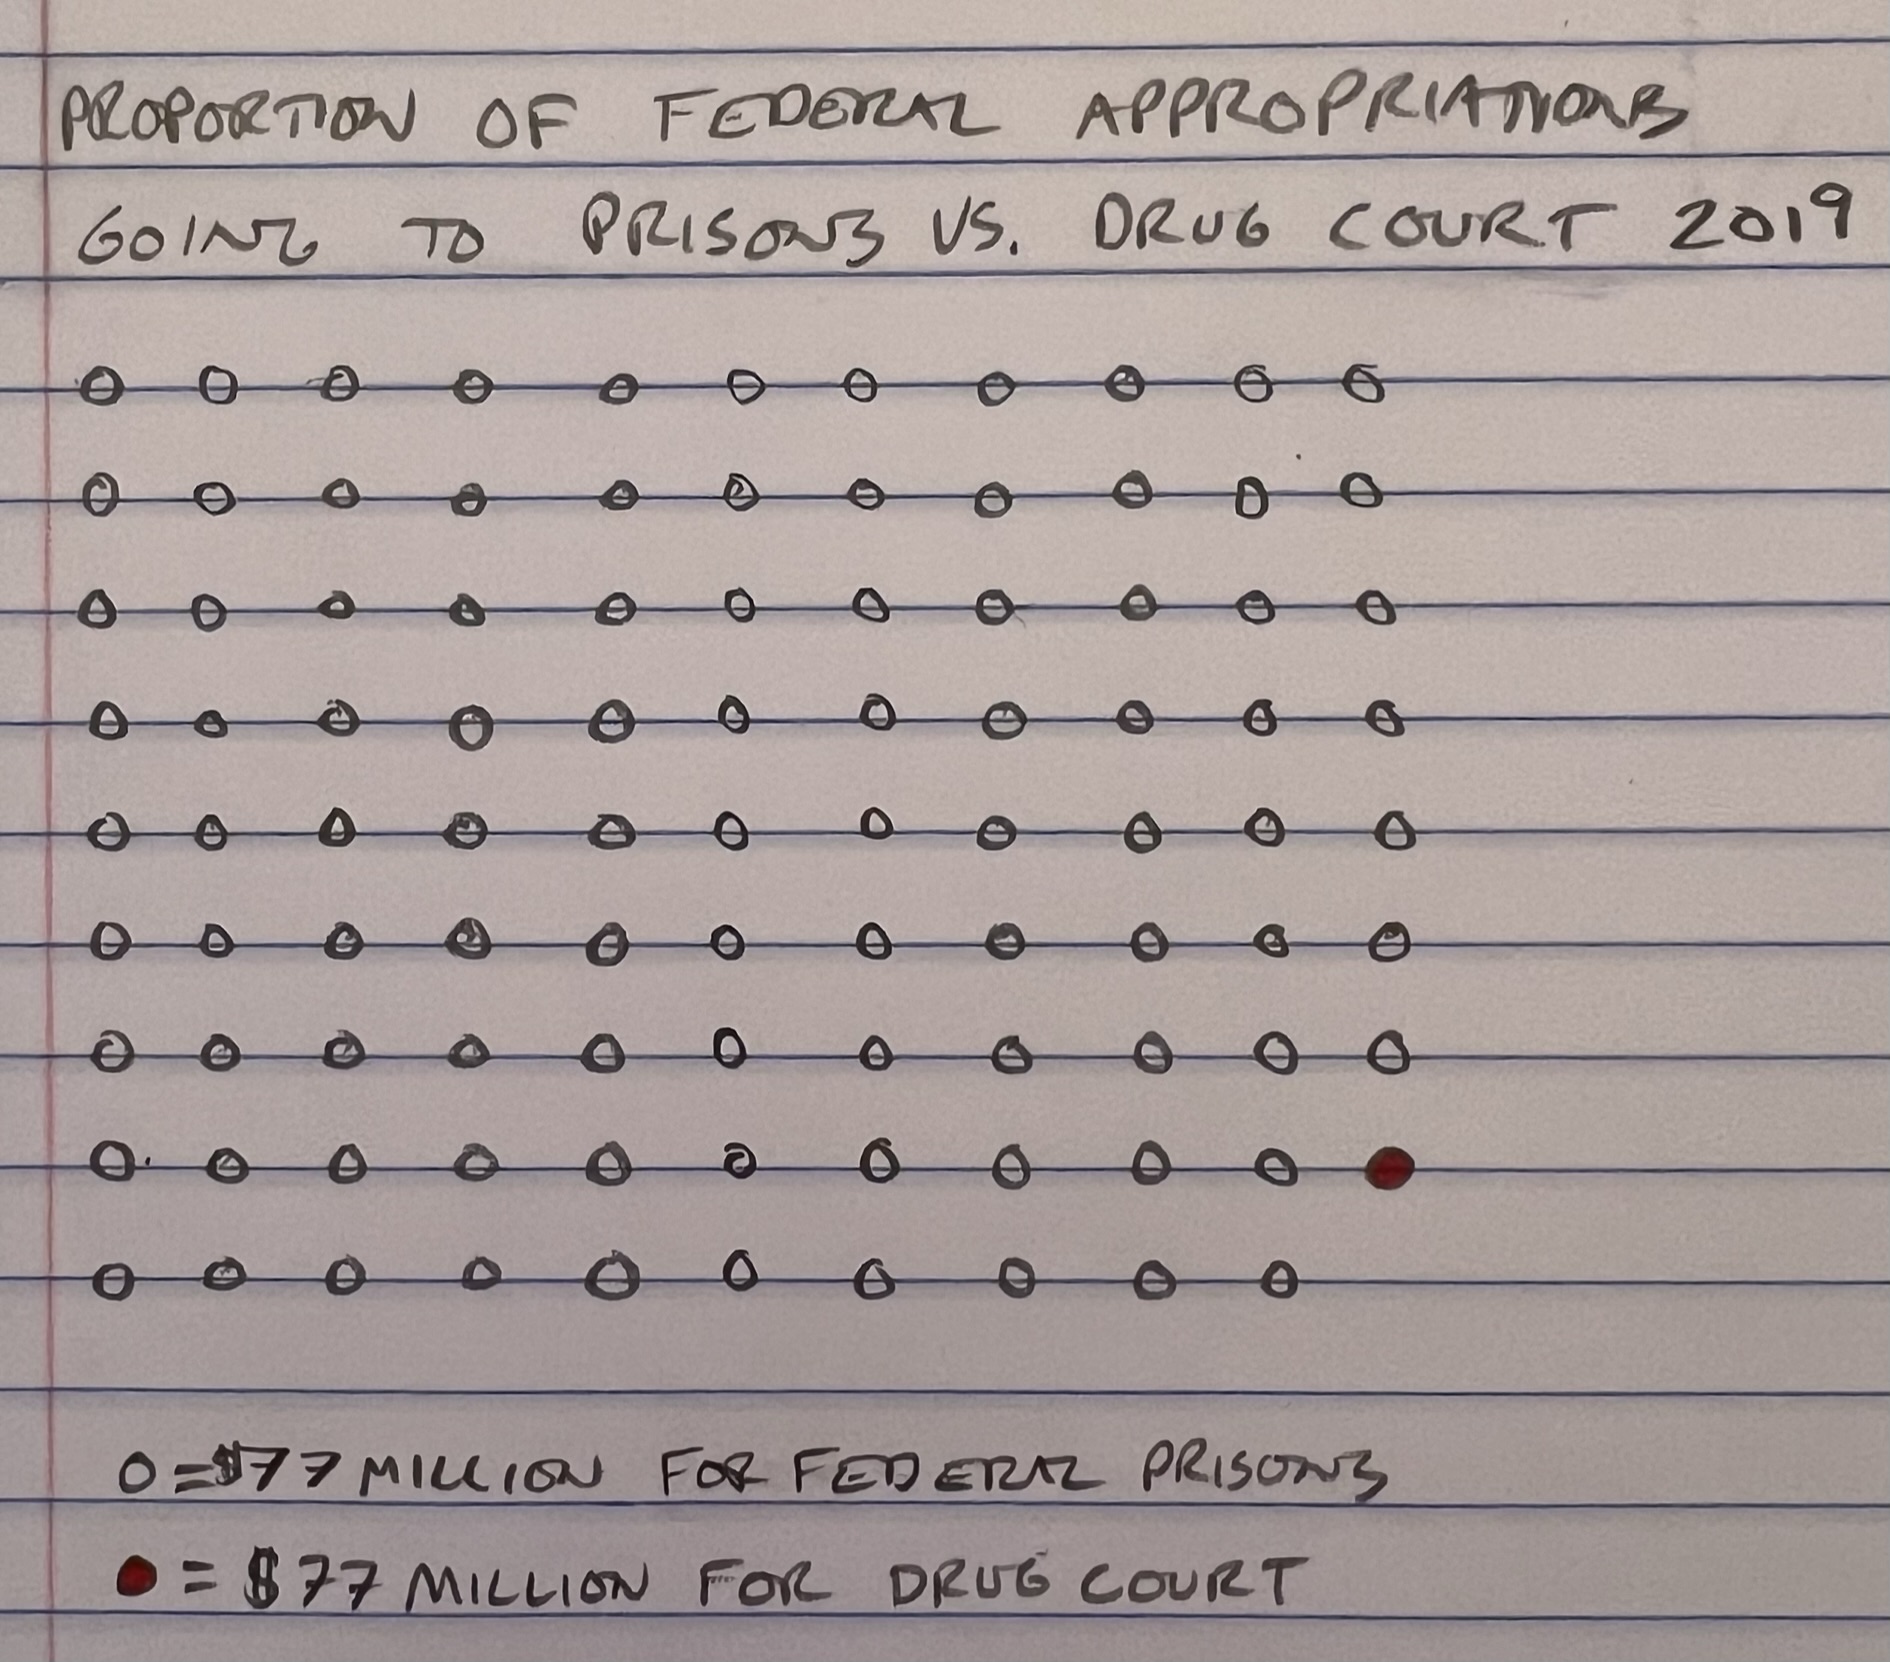 PROPORTION OF FEDERAL APPROPRIATIONS
GOING TO PRISONS VS. DRUG COURT 2019
O = $77 MILLION FOR FEDERAL PRISONS
= $77 MILLION FOR DRUG COURT